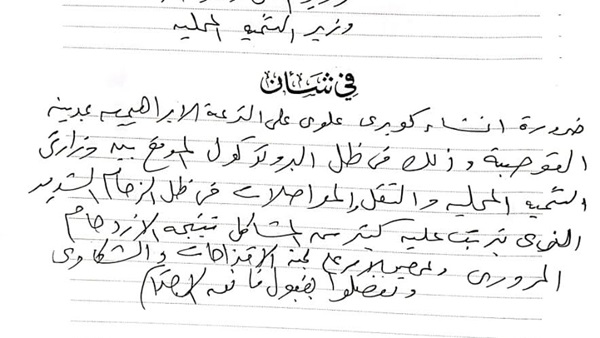 وزير التنمية المحلية
في شأن
ضرورة انشاء كوبرى علوى على الترعة الابراهيمية بمدينة
القوصية وذلك فى ظل البروتوكول الموقع بين وزارتى
التنمية المحلية والنقل والمواصلات فى ظل الزحام الشديد
الذى يترتب عليه كثير من المشاكل نتيجة الازدحام
المرورى لجنة الاقتراحات والشكاوى
وتفضلوا بقبول فائق الاحترام